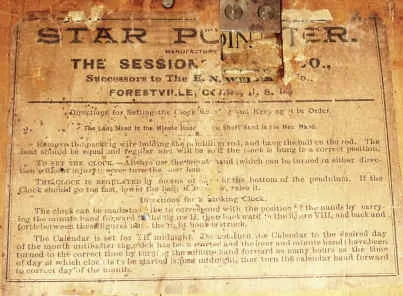 STAR POINTER.
MANUFACTURED
THE SESSIONS CO.,
Successors to The E. N. Co.,
FORESTVILLE, CONN., U. S. A.
Directions for Setting the Clock and Keeping it in Order.
The Long Hand is the Minute Hand Short Hand is the Hour Hand.
Remove the packing wire holding the pendulum rod, and hang the ball on the rod. The
beat should be equal and regular and will be so if the clock is hung in a correct position.
TO SET THE CLOCK—Always use the minute hand (which can be turned in either direc-
tion without injury) never turn the hour hand.
THE CLOCK IS REGULATED by means of at the bottom of the pendulum. If the
Clock should go too fast, lower the ball; if too raise it.
Directions for Striking Clock.
The clock can be made to strike to correspond with the position of the hands by carry-
ing the minute hand forward to figure XII, then backward to the figure VIII, and back and
forth between these figures until the right hour is struck.
The Calendar is set for midnight. turn the Calendar to the desired day
of the month until after the clock has been started and the hour and minute hand have been
turned to the correct time by turning the minute hand forward as many hours as the time
of day at which clock is to be started is past midnight, then turn the calendar hand forward
to correct day of the month.